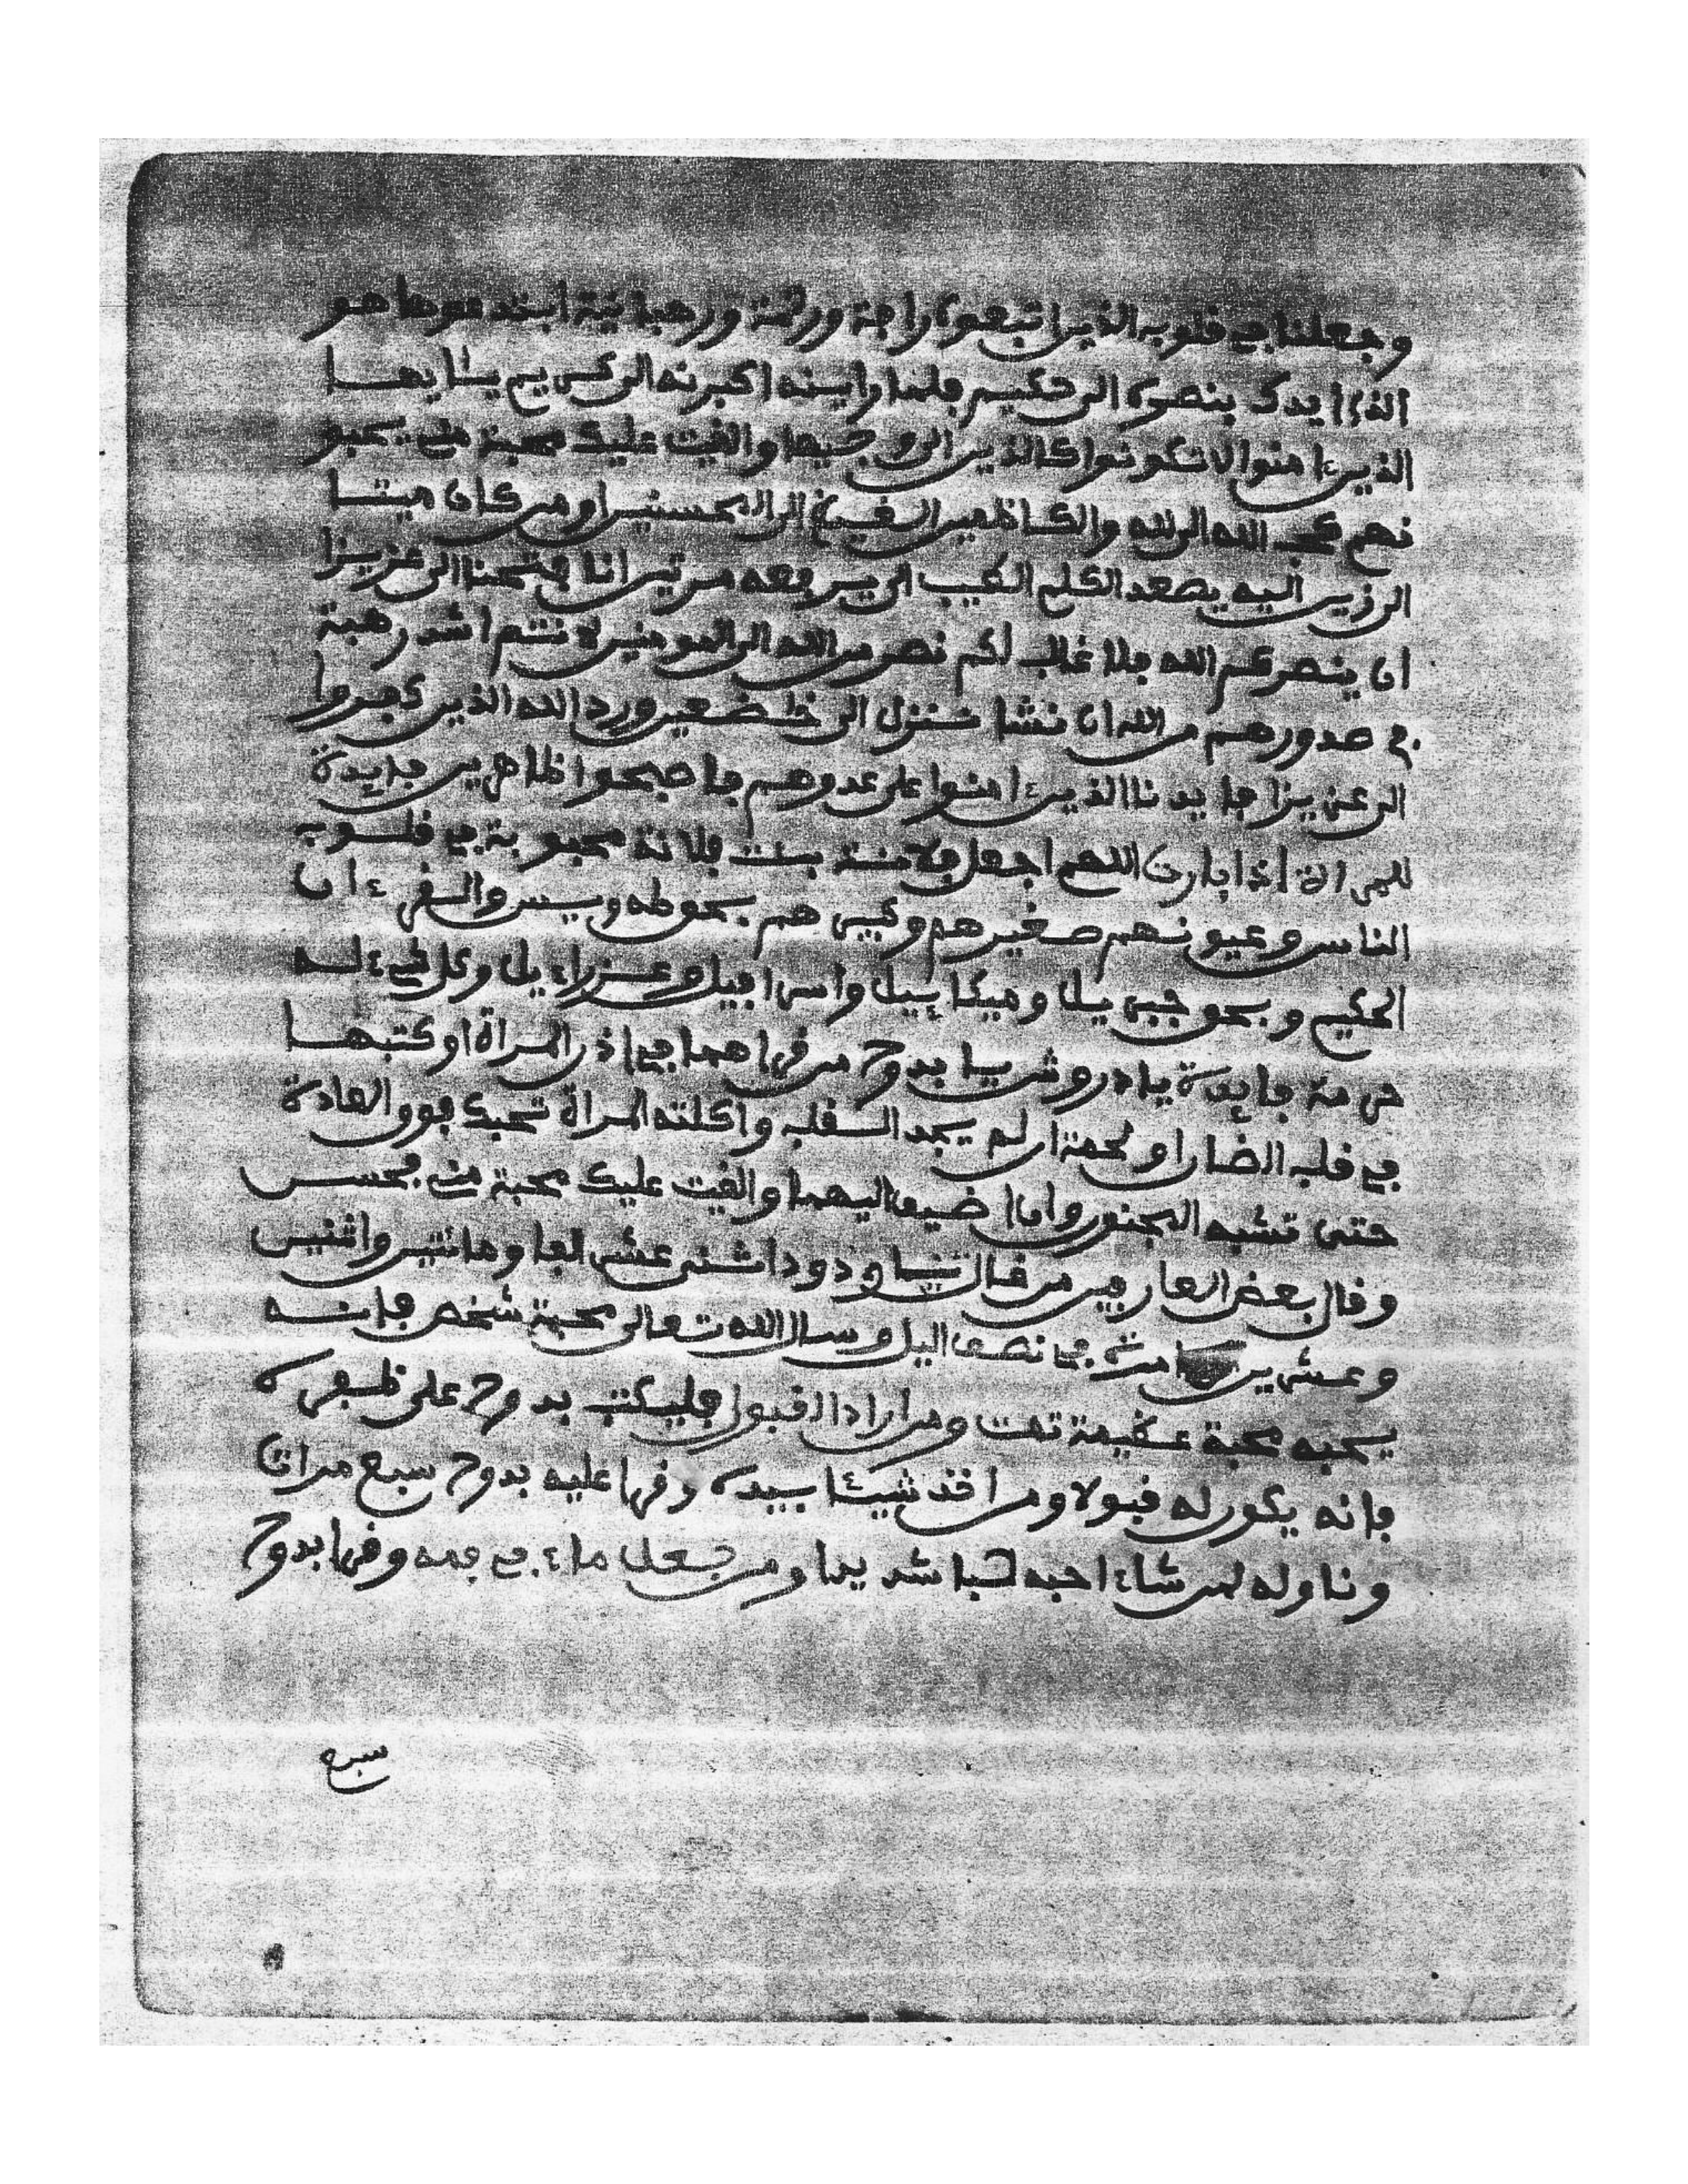 وجعلنا في قلوب الذين اتبعوه رافة ورحمة ورهبانية ابتدعوها هو
الذي ايدك بنصره الى حكيم فلما راينه اكبرنه الى كريم يا ايها
الذين ءامنوا لا تكونوا كالذين الى وجيها والقيت عليك محبة مني يحبو
نهم كحب الله الى لله والكاظمين الغيظ الى المحسنين او من كان ميتا
الى زين اليه يصعد الكلم الطيب الى يرفعه مرتين انا فتحنا الى عزيزا
ان ينصركم الله فلا غالب لكم نصر من الله الى المومنين لا نتم اشد رهبة
في صدورهم من الله ان نشا ننزل الى خضعين ورد الله الذين كفروا
الى عزيزا فايدنا الذين ءامنوا على عدوهم فاصبحوا ظاهرين فايدة
للمراة اذا بارت اللهم اجعل فلانة بنت فلانة محبوبة في قلوب
الناس وعيونهم صغيرهم وكبيرهم بحق طه ويس والقرءان
الحكيم وبحق جبريل وميكاييل واسرافيل وعزراءيل وكل شيء له
حرمة فايدة يا دروش يا بدوح من قراهما في اذن المراة او كتبها
في قلب الضار او لحمة ان لم يجد القلب واكلته المراة تحبك فوق العادة
حتى تشبه المجنون وان اضيف اليهما والقيت عليك محبة مني فحسن
وقال بعض العارفين من قال يا ودود اثنى عشر الفا ومائتين واثنين
وعشرين مرة في نصف اليل وسال الله تعالى محبة شخص فانه
يحبه محبة عظيمة تمت ومن اراد القبول فليكتب بدوح على ظفره
فانه يكون له قبولا ومن اخذ شيئا بيده وقرا عليه بدوح سبع مرات
وناوله لمن شاء احبه حبا شديدا ومن جعل ماء في فمه وقرا بدوح
سبع